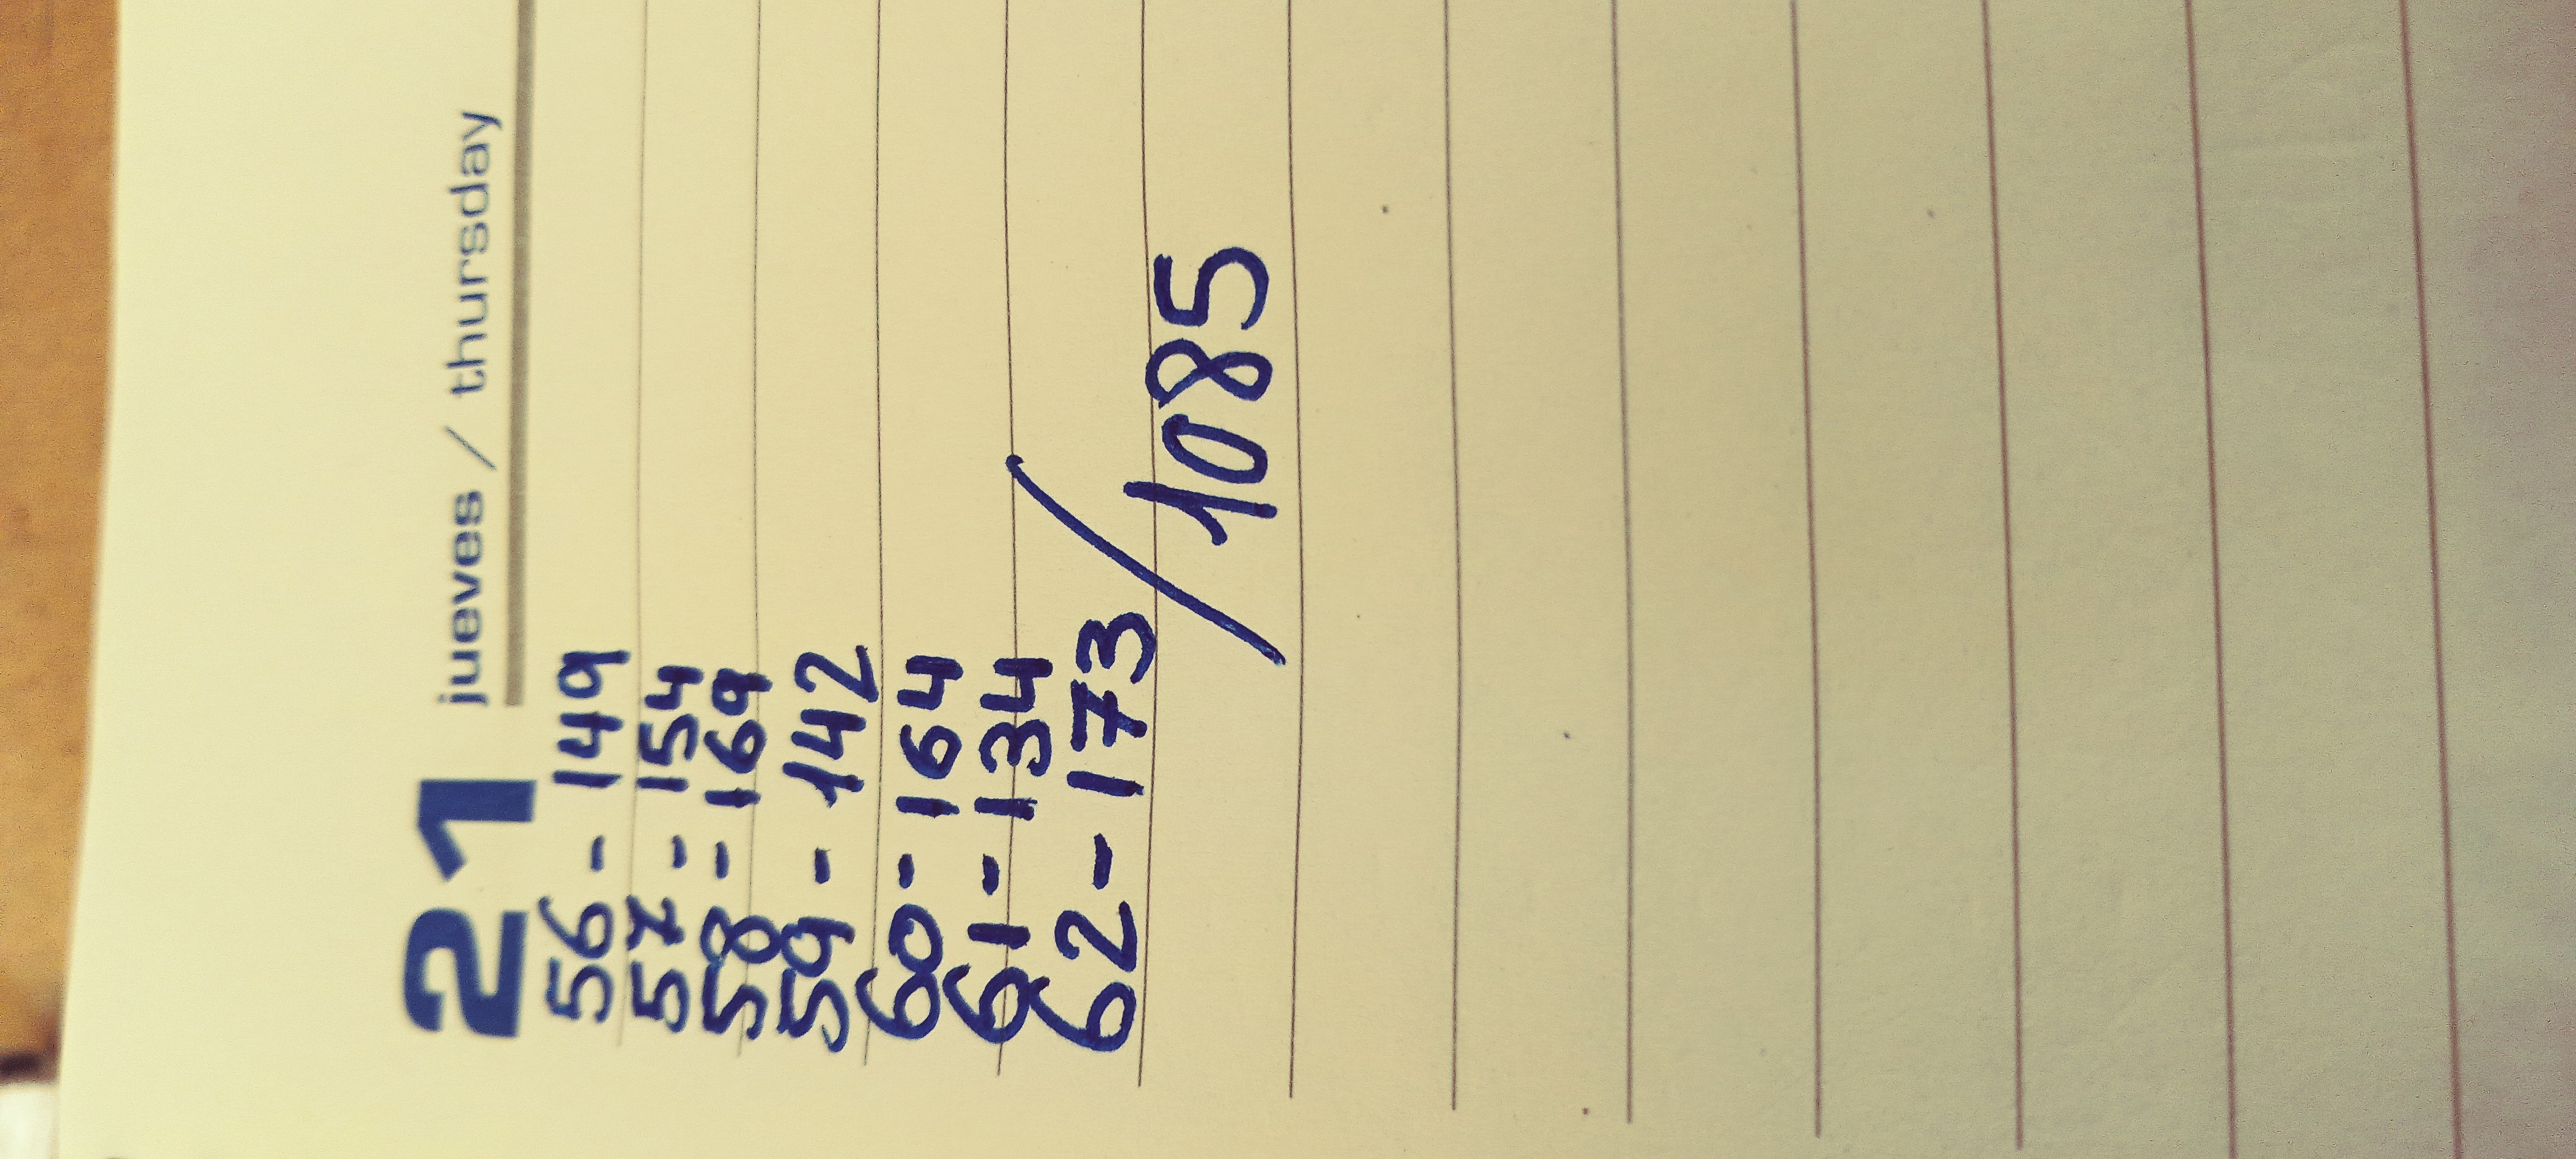 21 jueves / thursday
56 - 149
57 - 154
58 - 169
59 - 142
60 - 164
61 - 134
62 - 173 / 1085